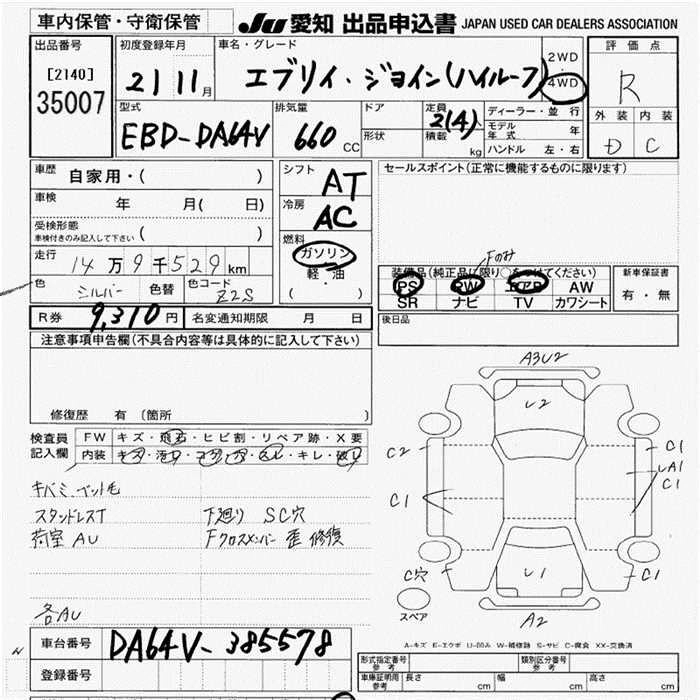 車内保管・守衛保管
JU 愛知 出品申込書 JAPAN USED CAR DEALERS ASSOCIATION
出品番号
[2140]
35007
初度登録年月
21 11月
車名・グレード
エブリイ・ジョイン(ハイルーフ)
2WD
・
4WD
評価点
R
外装 内装
D C
型式
EBD-DA64V
排気量
660 CC
ドア
形状
定員
2(4)
積載 kg
ディーラー・並行
モデル年式 年
ハンドル 左・右
車歴
自家用・( )
車検 年 月( 日)
受検形態
車検付きのみ記入して下さい ( )
走行
14万9千529km
色
シルバー 色替
色コード
Z2S
シフト
AT
冷房
AC
燃料
ガソリン
軽・油
( )
セールスポイント(正常に機能するものに限ります)
Fのみ
装備品(純正品に限り○をつけてください)
PS PW エアB AW
SR ナビ TV カワシート
新車保証書
有・無
R券 9,310円 名変通知期限 月 日
後日品
注意事項申告欄(不具合内容等は具体的に記入して下さい)
修復歴 有(箇所 )
検査員記入欄
FW キズ・飛石・ヒビ割・リペア跡・X要
内装 キズ・汚れ・コゲ・穴・スレ・キレ・破れ
キバミ、ペット毛
スタンドレスT 下廻り SC穴
荷室AU Fクロスメンバー 歪 修復
各AU
A3U2
U2
C2
C1
C1
LA1
C1
C穴
U1
C1
スペア
A2
A-キズ E-エクボ U-凹み W-補修跡 S-サビ C-腐食 XX-交換済
車台番号 DA64V-385578
登録番号
形式指定番号
参考
類別区分番号
参考
車庫証明用
参考
長さ cm 幅 cm 高さ cm